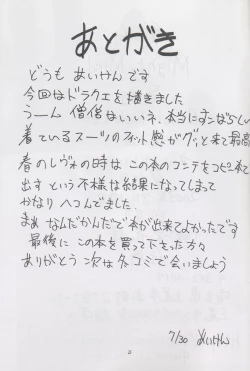 あとがき
どうも あいけんです
今回はドラクエを描きました
うーん 僧侶はいいネ、本当にすンばらしい
着ているスーツのフィット感がグッと来て最高
春のレヴォの時は この本のコンテをコピー本で
出す という不様な結果になってしまって
かなり ヘコムでました。
まぁ なんだかんだで本が出来てよかったです
最後に この本を買って下さった方々
ありがとう 次は冬コミで会いましょう
7/30 あいけん